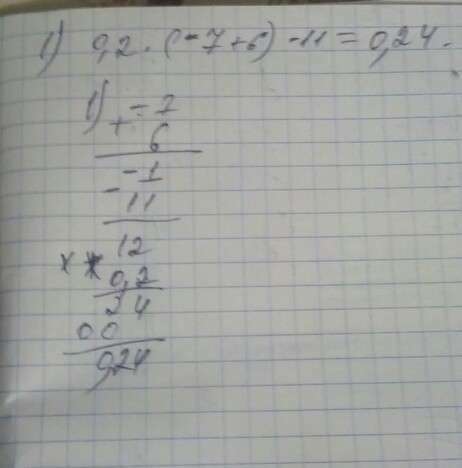 1) 0,2 · (-7+6) - 11 = 0,24.
1) + -7
6
- -1
11
12
x x 0,2
24
00
0,24